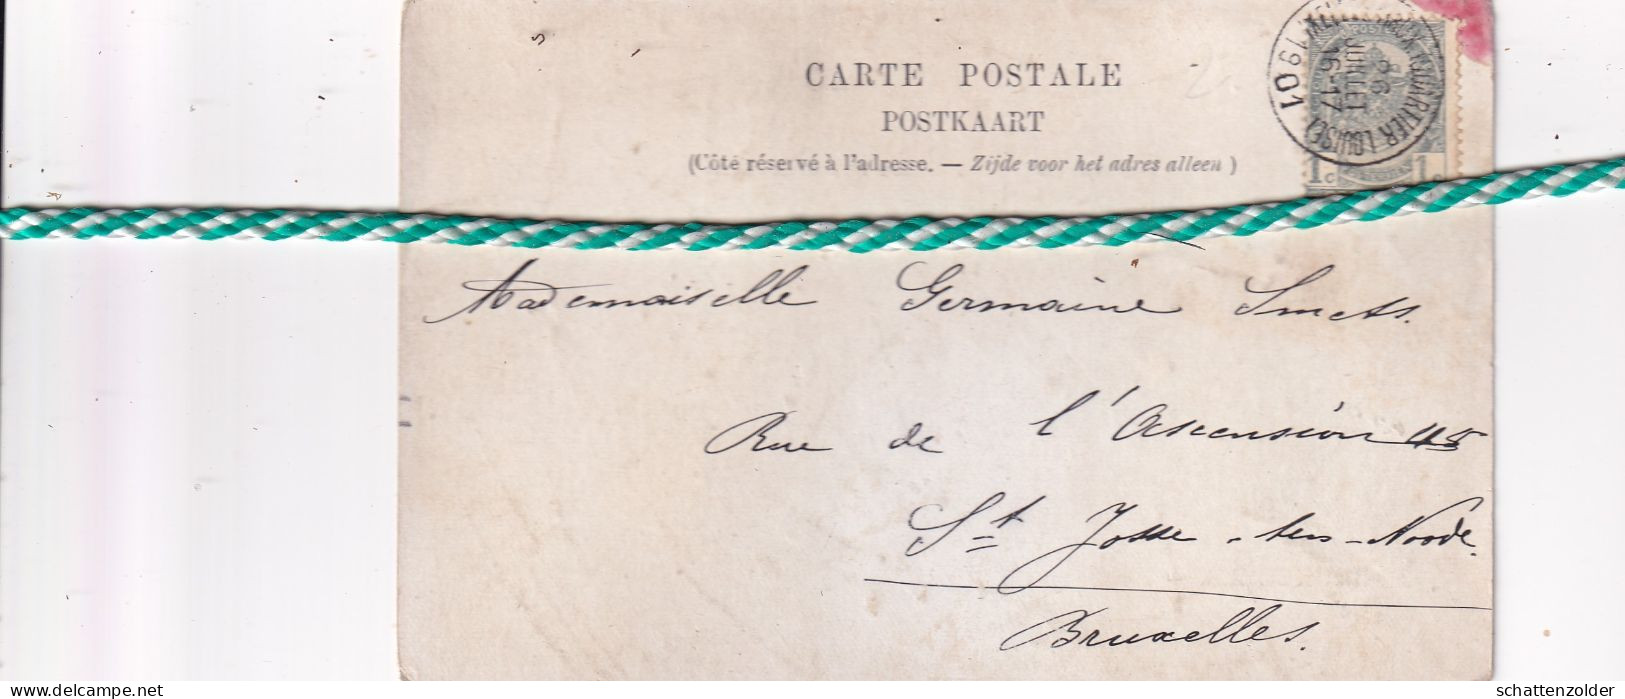 CARTE POSTALE
POSTKAART
(Côté réservé à l'adresse. — Zijde voor het adres alleen)
QUARTIER LOUISE
16-17
JUILLET
1901
1c 1c
Mademoiselle Germaine Smets.
Rue de l'Ascension 45
St Josse-ten-Noode.
Bruxelles.
schattenzolder